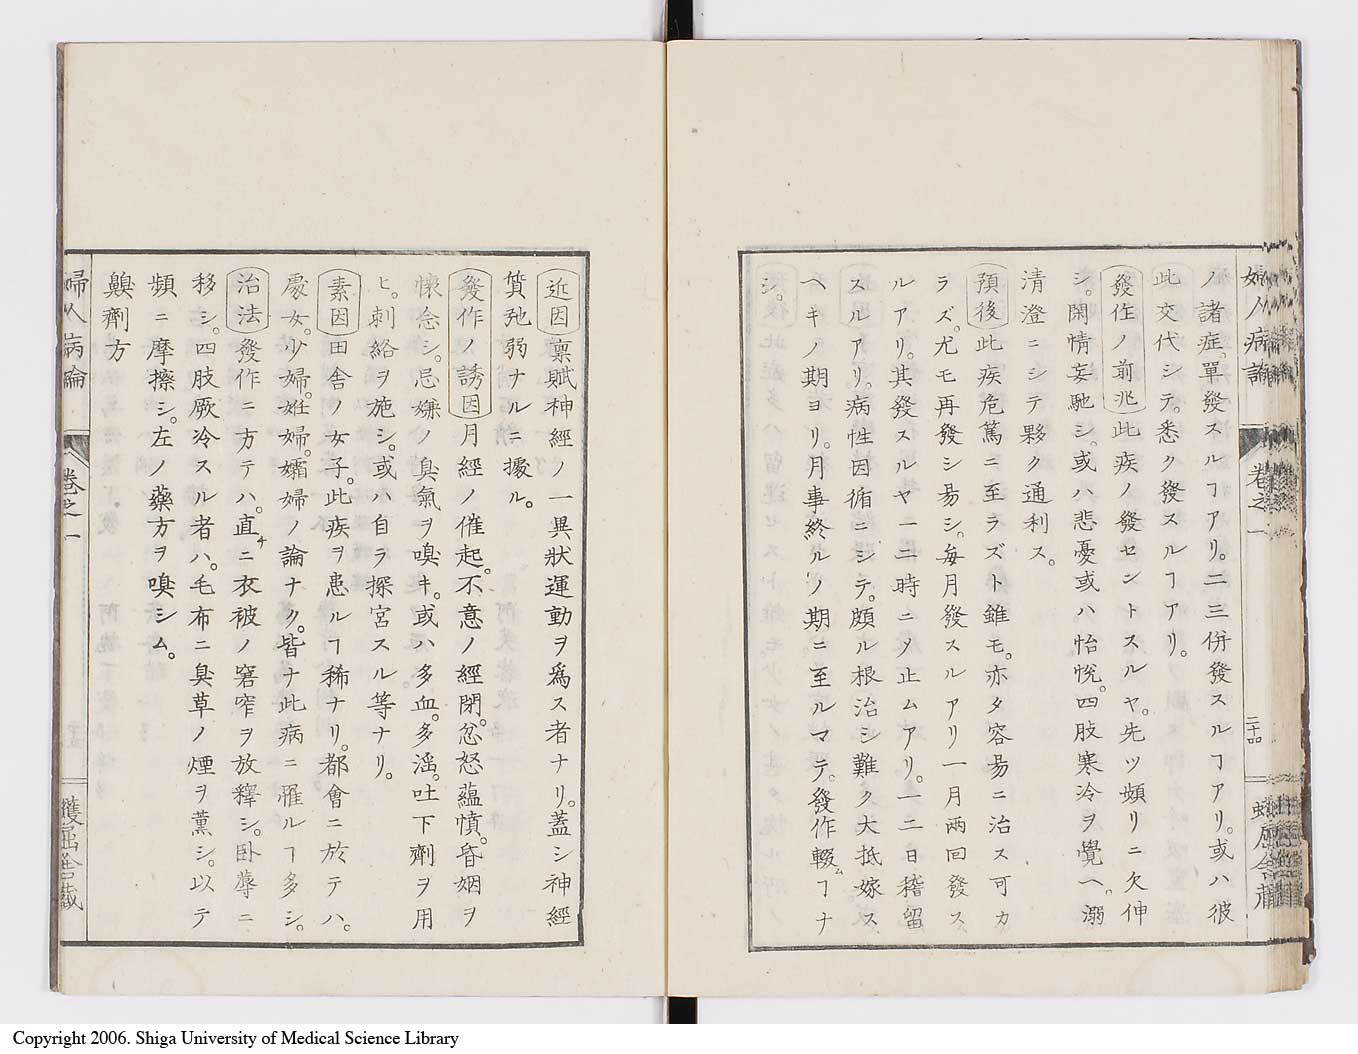 婦人病論 卷之一 二十四 蠖屈舍藏
ノ諸症。單發スルヿアリ。二三併發スルヿアリ。或ハ彼
此交代シテ。悉ク發スルヿアリ。
發作ノ前兆 此疾ノ發セントスルヤ。先ツ頻リニ欠伸
シ。閑情妄馳シ。或ハ悲憂或ハ怡悅。四肢寒冷ヲ覺ヘ。溺
清澄ニシテ夥ク通利ス。
預後 此疾危篤ニ至ラズト雖モ。亦タ容昜ニ治ス可カ
ラズ。尤モ再發シ昜シ。每月發スルアリ一月兩回發ス
ルアリ。其發スルヤ一二時ニメ止ムアリ。一二日稽留
スルアリ。病性因循ニシテ。頗ル根治シ難ク大抵嫁ス
ヘキノ期ヨリ。月事終ルノ期ニ至ルマテ。發作輟ムヿナ
シ。
近因 稟賦神經ノ一異狀運動ヲ爲ス者ナリ。蓋シ神經
質弛弱ナルニ據ル。
發作ノ誘因 月經ノ催起。不意ノ經閉。忿怒蘊憤。昏姻ヲ
懷念シ。忌嫌ノ臭氣ヲ嗅キ。或ハ多血。多滛。吐下劑ヲ用
ヒ。刺絡ヲ施シ。或ハ自ヲ探宮スル等ナリ。
素因 田舍ノ女子。此疾ヲ患ルヿ稀ナリ。都會ニ於テハ。
處女。少婦。妊婦。孀婦ノ論ナク。皆ナ此病ニ罹ルヿ多シ。
治法 發作ニ方テハ。直チニ衣被ノ窘窄ヲ放釋シ。卧蓐ニ
移シ。四肢厥冷スル者ハ。毛布ニ臭草ノ煙ヲ薰シ。以テ
頻ニ摩擦シ。左ノ藥方ヲ嗅シム。
齅劑方
婦人病論 卷之一 蠖屈舍藏
Copyright 2006. Shiga University of Medical Science Library